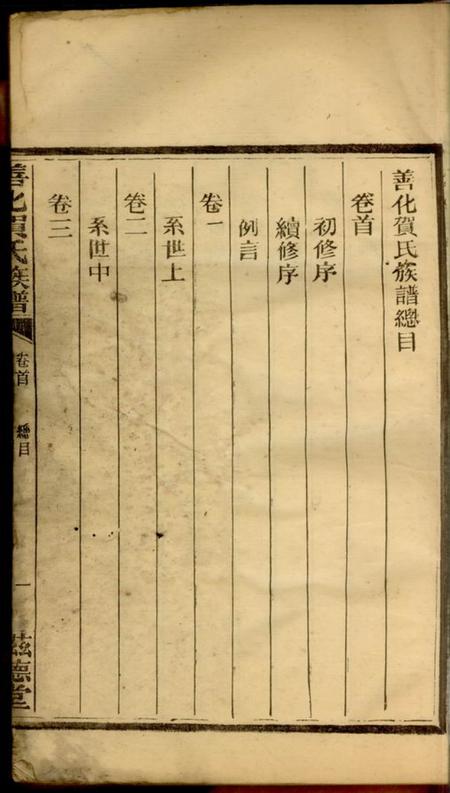 善化賀氏族譜總目
卷首
初修序
續修序
例言
卷一
系世上
卷二
系世中
卷三
善化賀氏族譜
卷首
總目
一
茲德堂